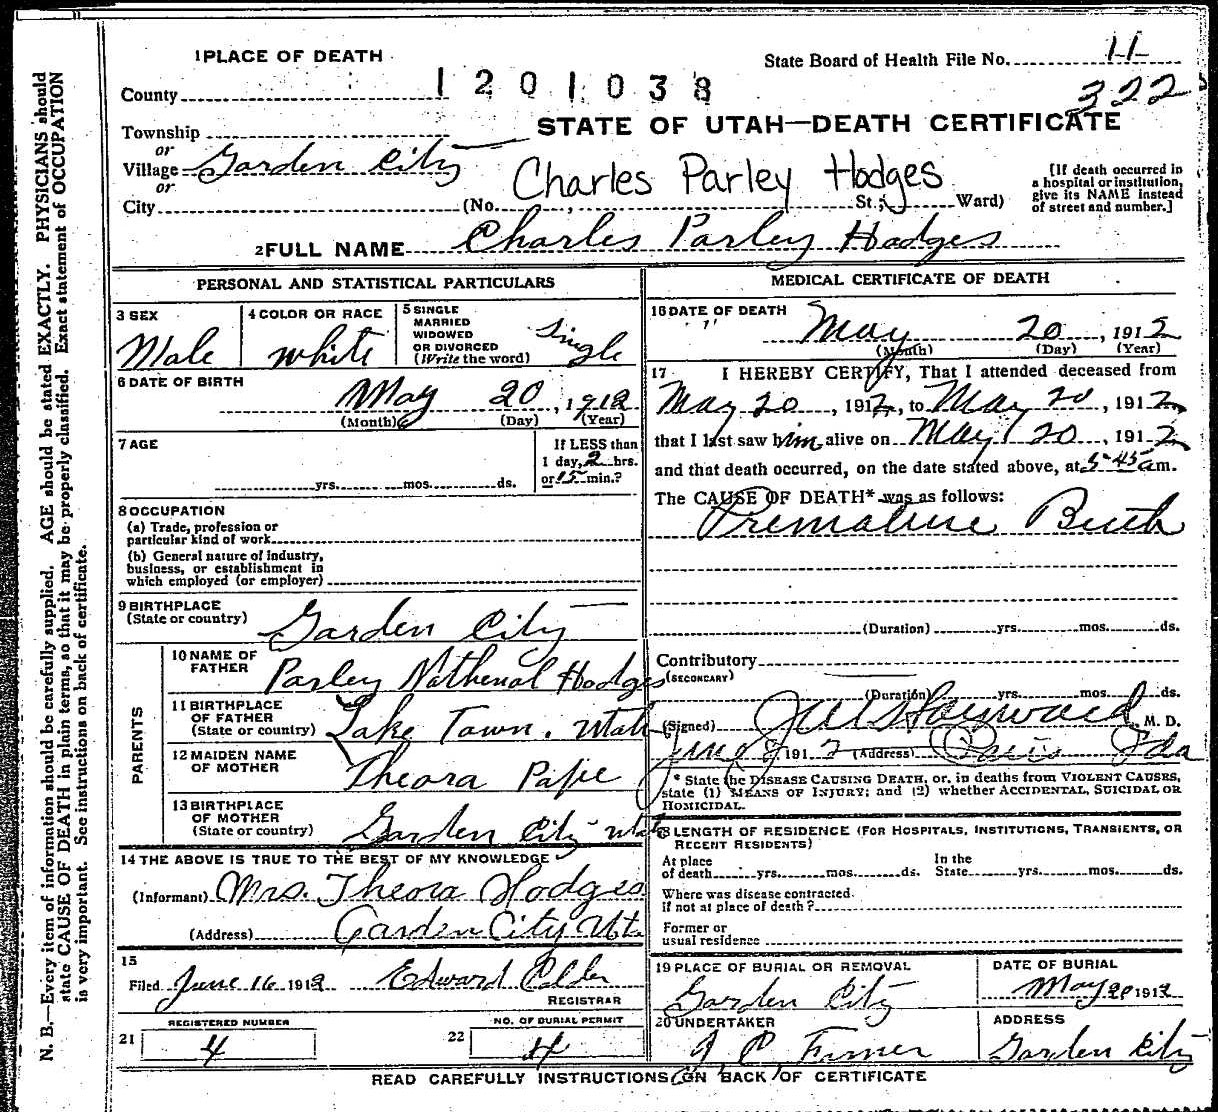 1 PLACE OF DEATH
State Board of Health File No. 11
322
County 1201038
Township
STATE OF UTAH—DEATH CERTIFICATE
or
Village Garden City
or
Charles Parley Hodges
[If death occurred in a hospital or institution, give its NAME instead of street and number.]
City (No. , St.; Ward)
2 FULL NAME Charles Parley Hodges
PERSONAL AND STATISTICAL PARTICULARS
3 SEX Male
4 COLOR OR RACE white
5 SINGLE MARRIED WIDOWED OR DIVORCED (Write the word) Single
6 DATE OF BIRTH
May 20, 1912
(Month) (Day) (Year)
7 AGE
yrs. mos. ds.
If LESS than
1 day, 2 hrs.
or 15 min.?
8 OCCUPATION
(a) Trade, profession or
particular kind of work
(b) General nature of industry,
business, or establishment in
which employed (or employer)
9 BIRTHPLACE
(State or country) Garden City
PARENTS
10 NAME OF
FATHER Parley Nathenal Hodges
11 BIRTHPLACE
OF FATHER
(State or country) Lake Town. Utah
12 MAIDEN NAME
OF MOTHER Theora
13 BIRTHPLACE
OF MOTHER
(State or country) Garden City Utah
14 THE ABOVE IS TRUE TO THE BEST OF MY KNOWLEDGE
(Informant) Mrs. Theora Hodges
(Address) Garden City Ut.
15
Filed June 16 1912 Edward Calder
REGISTRAR
REGISTERED NUMBER
21 4
NO. OF BURIAL PERMIT
22 4
MEDICAL CERTIFICATE OF DEATH
16 DATE OF DEATH
May 20, 1912
(Month) (Day) (Year)
17 I HEREBY CERTIFY, That I attended deceased from
May 20, 1912, to May 20, 1912
that I last saw him alive on May 20, 1912
and that death occurred, on the date stated above, at 5-45 am.
The CAUSE OF DEATH* was as follows:
Premature Birth
(Duration) yrs. mos. ds.
Contributory
(SECONDARY)
(Duration) yrs. mos. ds.
(Signed) Hayward M. D.
1912 (Address) Paris Ida
* State the DISEASE CAUSING DEATH, or, in deaths from VIOLENT CAUSES,
state (1) MEANS OF INJURY; and (2) whether ACCIDENTAL, SUICIDAL OR
HOMICIDAL.
18 LENGTH OF RESIDENCE (FOR HOSPITALS, INSTITUTIONS, TRANSIENTS, OR
RECENT RESIDENTS)
At place
of death yrs. mos. ds.
In the
State yrs. mos. ds.
Where was disease contracted.
if not at place of death?
Former or
usual residence
19 PLACE OF BURIAL OR REMOVAL
Garden City
DATE OF BURIAL
May 20 1912
20 UNDERTAKER
ADDRESS
Garden City
READ CAREFULLY INSTRUCTIONS ON BACK OF CERTIFICATE
N. B.—Every item of information should be carefully supplied. AGE should be stated EXACTLY. PHYSICIANS should
state CAUSE OF DEATH in plain terms, so that it may be properly classified. Exact statement of OCCUPATION
is very important. See instructions on back of certificate.